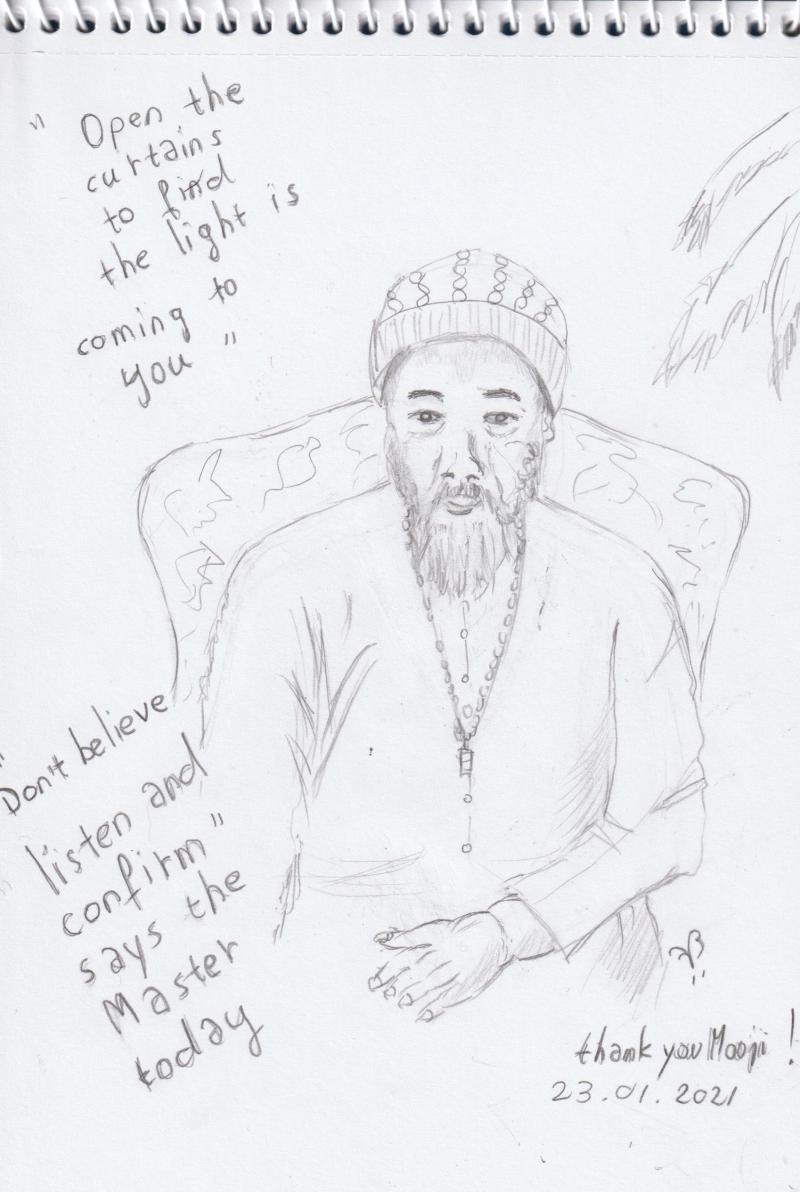 " Open the
curtains
to find
the light is
coming to
you "
"Don't believe
listen and
confirm"
says the
Master
today
thank you Mooji !
23.01.2021